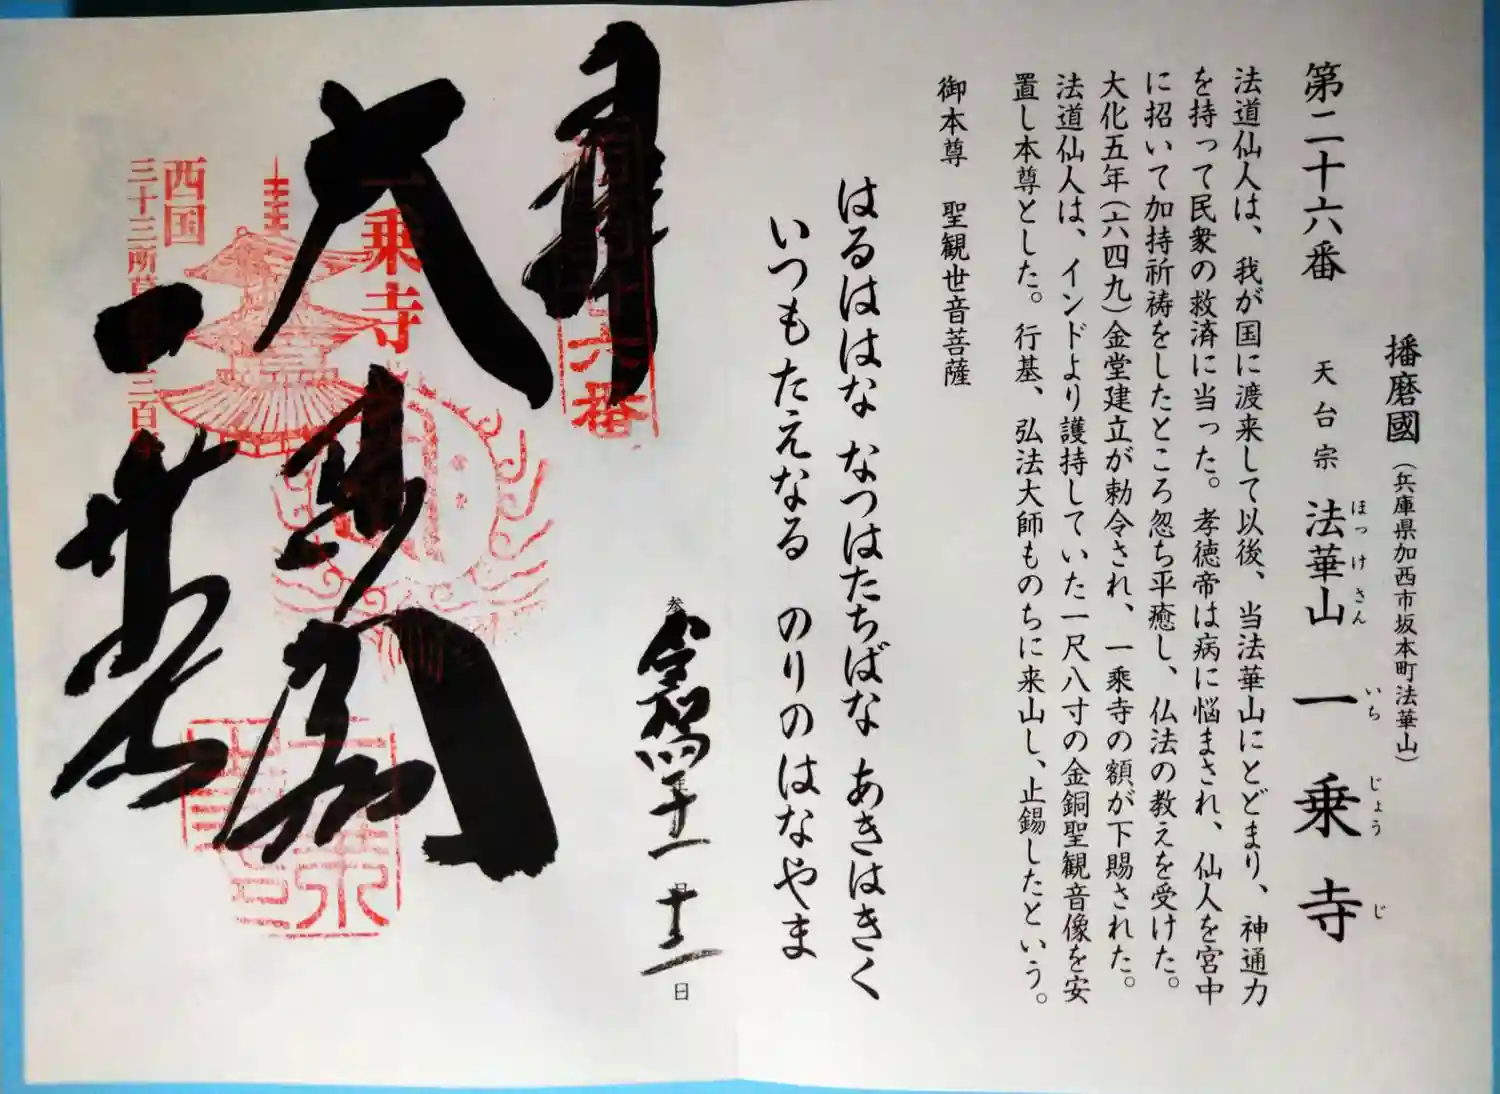 播磨國（兵庫県加西市坂本町法華山）
第二十六番 天台宗 法華山 一乗寺
ほっけさん いちじょうじ
法道仙人は、我が国に渡来して以後、当法華山にとどまり、神通力
を持って民衆の救済に当った。孝徳帝は病に悩まされ、仙人を宮中
に招いて加持祈祷をしたところ忽ち平癒し、仏法の教えを受けた。
大化五年（六四九）金堂建立が勅令され、一乗寺の額が下賜された。
法道仙人は、インドより護持していた一尺八寸の金銅聖観音像を安
置し本尊とした。行基、弘法大師ものちに来山し、止錫したという。
御本尊 聖観世音菩薩
はるははな なつはたちばな あきはきく
いつもたえなる のりのはなやま
参
令和四年十一月十三日
拝
大悲閣
一乗寺
西国
三十三所草創千三百年